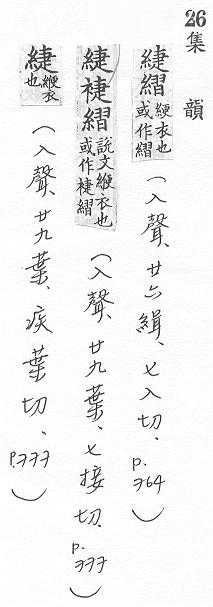 26集韻
緁䌌緶衣也或作䌌（入聲、廿六緝、七入切、p.764）
緁䙝䌌說文緶衣也或作䙝䌌（入聲、廿九葉、七接切、p.777）
緁緶衣也（入聲、廿九葉、疾葉切、p.777）